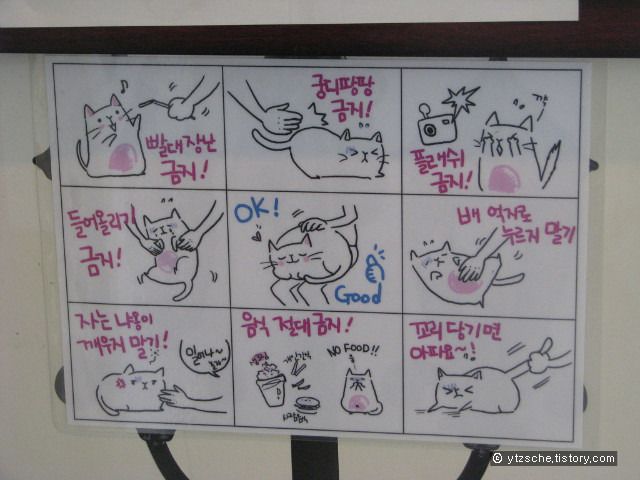 빨대장난
금지!
궁디팡팡
금지!
깍
플래쉬
금지!
들어올리기
금지!
OK!
Good
배 억지로
누르지 말기
자는 냐옹이
깨우지 말기!
일어나~
음식 절대금지!
NO FOOD!!
사람음식
꼬리 당기면
아파요~!
© ytzsche.tistory.com